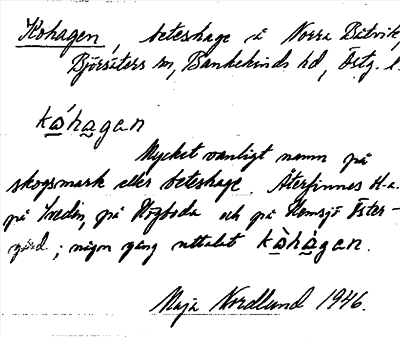 Kohagen, beteshage å Norra Bitvik,
Björsäters sn, Bankekinds hd, Östg. l.
kóhagan
Mycket vanligt namn på
skogsmark eller beteshage. Återfinnes H.a.
på Svedin, på Högboda och på Hemsjö Öster-
gård; någon gång uttalat kòhàgan.
Maja Nordlund 1946.